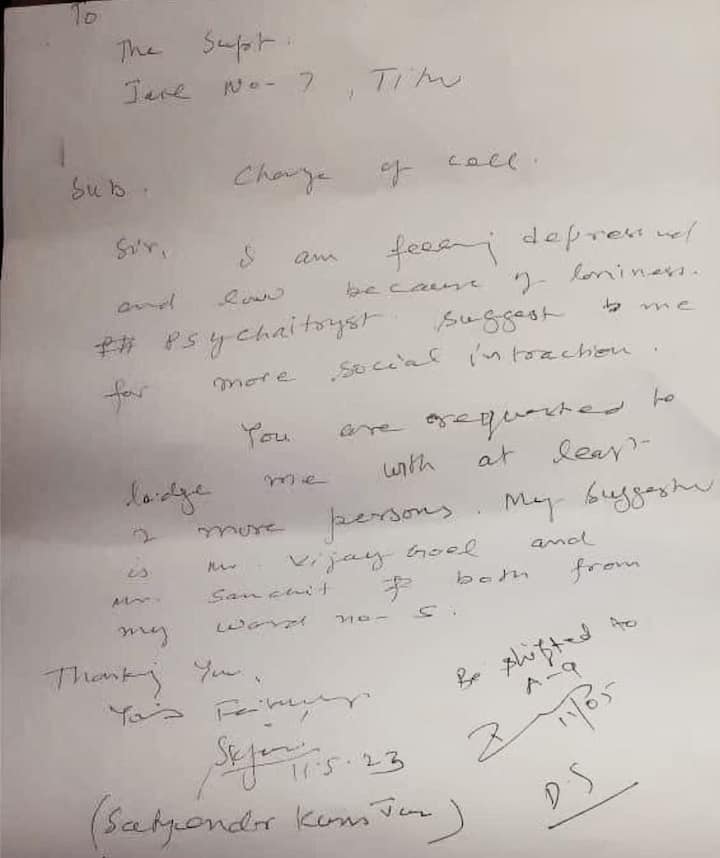 To
The Supt.
Jail No- 7, Tihar
Sub. Change of cell.
Sir, I am feeling depressed
and low because of loniness.
Psychaitryst suggest to me
for more social intraction.
You are requested to
lodge me with at least
2 more persons. My suggestion
is Mr. Vijay Goel and
Mr. Sanchit both from
my ward no- 5.
Thanking You,
Faithfully
11.5.23
(Satyendar Kumar Jain)
Be shifted to
A-9
11/05
D.S